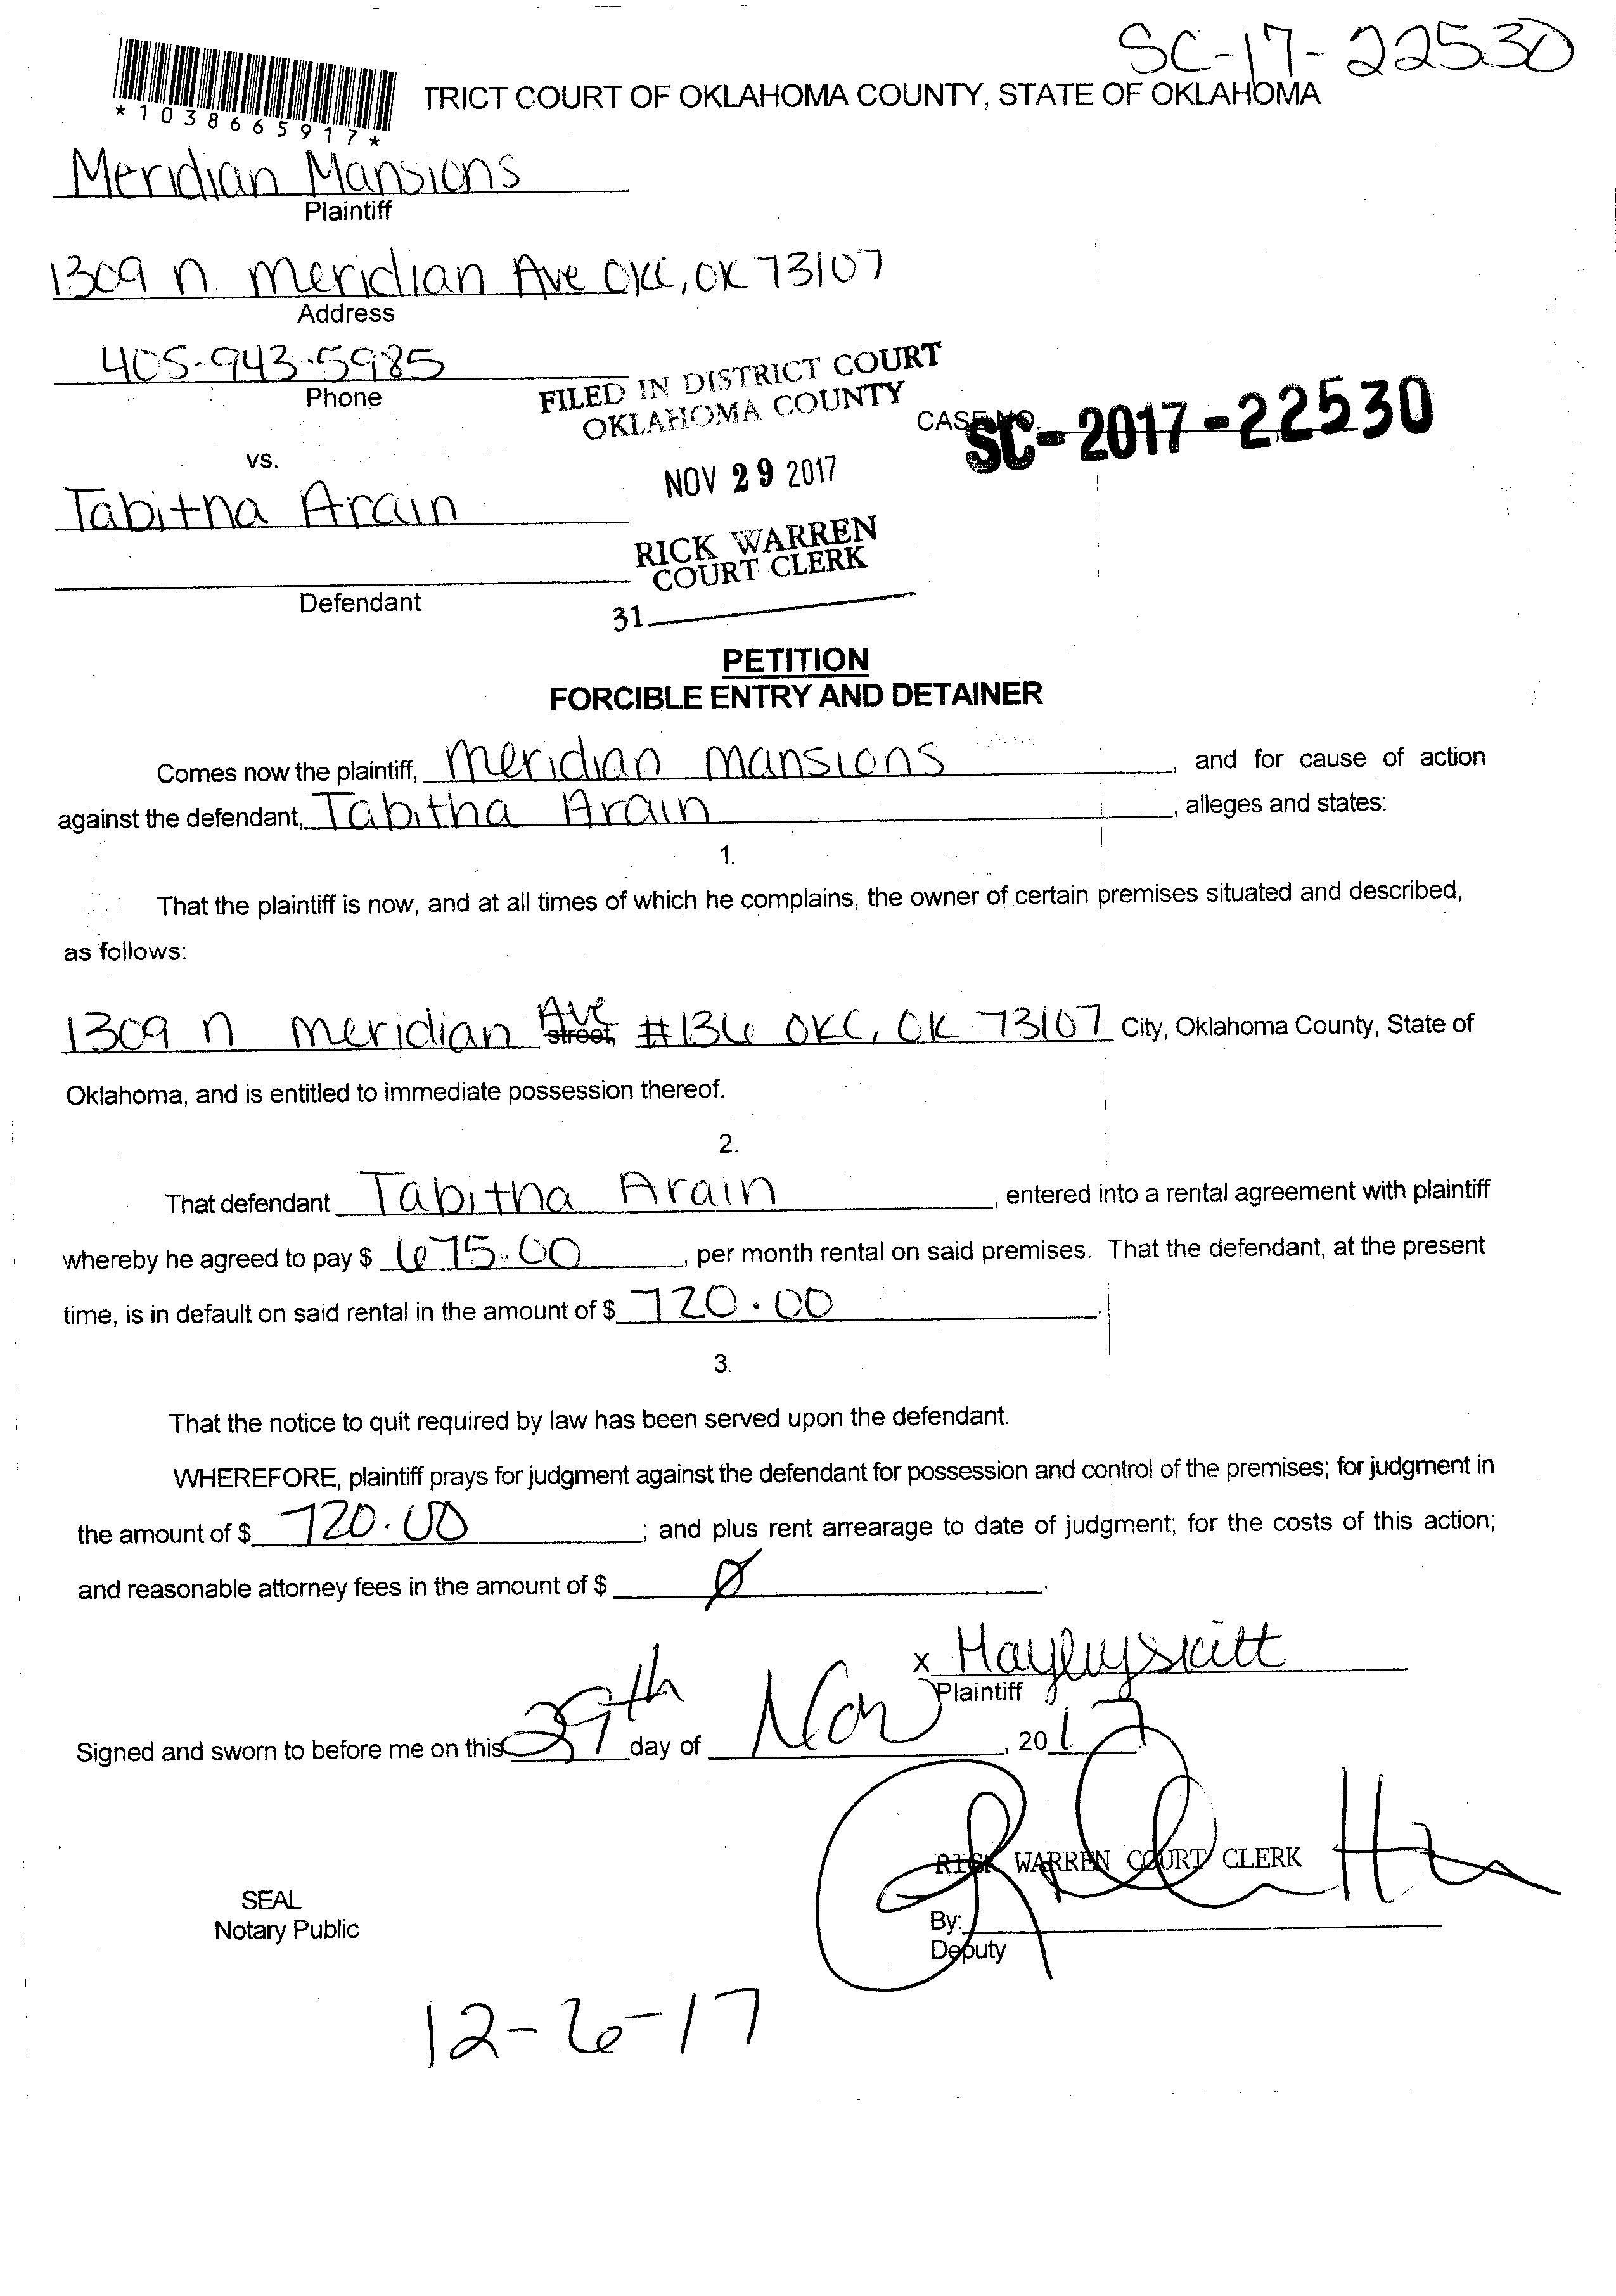 SC-17-22530
*1038665917*
TRICT COURT OF OKLAHOMA COUNTY, STATE OF OKLAHOMA
Meridian Mansions
Plaintiff
1309 N. Meridian Ave OKC, OK 73107
Address
405-943-5985
Phone
FILED IN DISTRICT COURT
OKLAHOMA COUNTY
CASE NO.
SC-2017-22530
vs.
NOV 29 2017
Tabitha Arain
RICK WARREN
COURT CLERK
Defendant
31
PETITION
FORCIBLE ENTRY AND DETAINER
Comes now the plaintiff, Meridian Mansions, and for cause of action
against the defendant, Tabitha Arain, alleges and states:
1.
That the plaintiff is now, and at all times of which he complains, the owner of certain premises situated and described,
as follows:
1309 N Meridian Ave street, #136 OKC, OK 73107 City, Oklahoma County, State of
Oklahoma, and is entitled to immediate possession thereof.
2.
That defendant Tabitha Arain, entered into a rental agreement with plaintiff
whereby he agreed to pay $ 675.00, per month rental on said premises. That the defendant, at the present
time, is in default on said rental in the amount of $ 720.00.
3.
That the notice to quit required by law has been served upon the defendant.
WHEREFORE, plaintiff prays for judgment against the defendant for possession and control of the premises; for judgment in
the amount of $ 720.00; and plus rent arrearage to date of judgment; for the costs of this action;
and reasonable attorney fees in the amount of $ Ø.
x
Plaintiff
Signed and sworn to before me on this 29th day of Nov, 2017
RICK WARREN COURT CLERK
SEAL
Notary Public
By:
Deputy
12-6-17